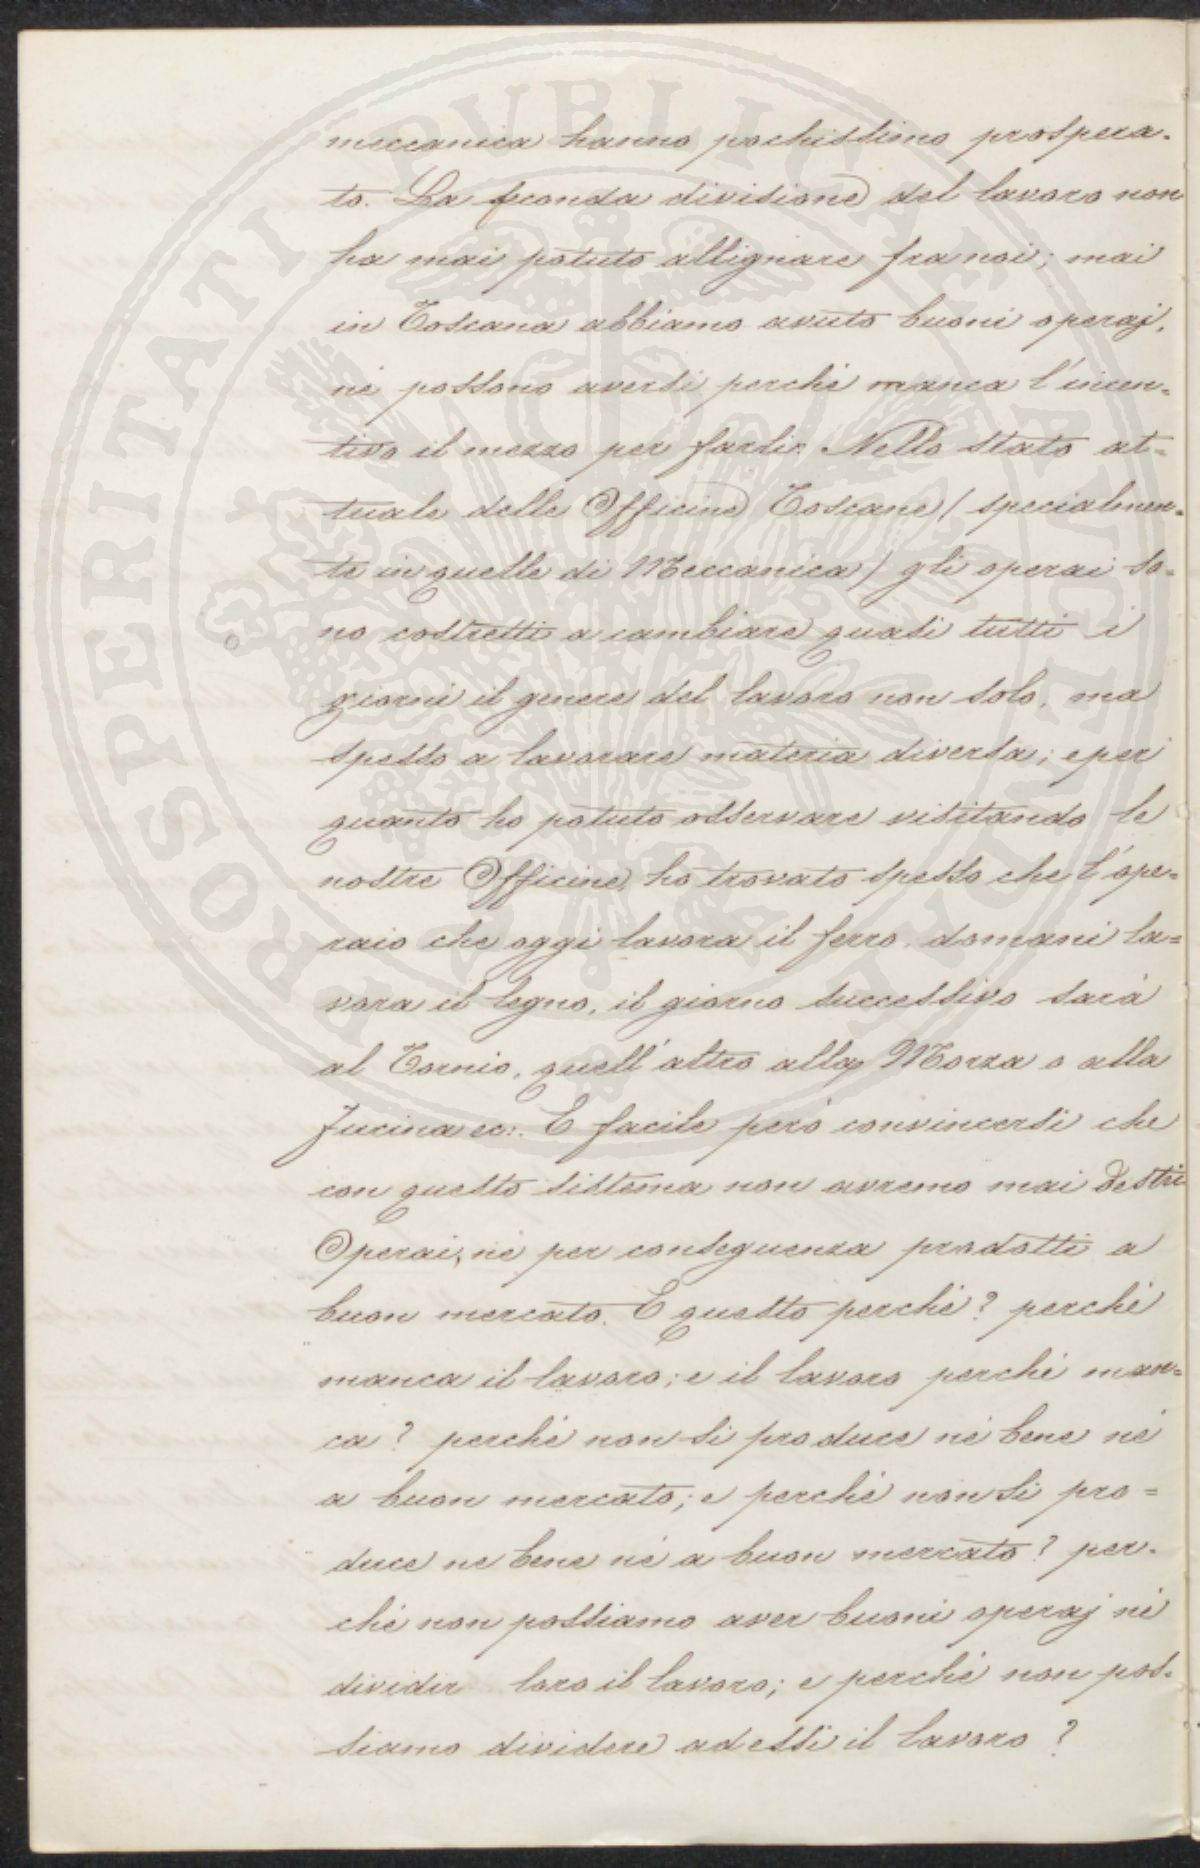 meccanica hanno pochissimo prospera-
to. La feconda divisione del lavoro non
ha mai potuto allignare fra noi; mai
in Toscana abbiamo avuto buoni operaj,
nè possono aversi perchè manca l'incen-
tivo il mezzo per farli. Nello stato at=
tuale delle Officine Toscane (specialmen-
te in quelle di Meccanica) gli operai so-
no costretti a cambiare quasi tutti i
giorni il genere del lavoro non solo, ma
spesso a lavorare materia diversa; e per
quanto ho potuto osservare visitando le
nostre Officine, ho trovato spesso che l'ope=
raio che oggi lavora il ferro, domani la=
vora il legno, il giorno successivo sarà
al Tornio, quell'altro alla Morza o alla
Fucina ec:. È facile però convincersi che
con questo sistema non avremo mai destri
Operai, nè per conseguenza prodotti a
buon mercato. E questo perchè? perchè
manca il lavoro; e il lavoro perchè man=
ca? perchè non si produce nè bene nè
a buon mercato; e perchè non si pro=
duce ne bene nè a buon mercato? per-
chè non possiamo aver buoni operaj nè
dividir loro il lavoro; e perchè non pos-
siamo dividere ad essi il lavoro?
PROSPERITATI PVBLICAE AVGENDAE